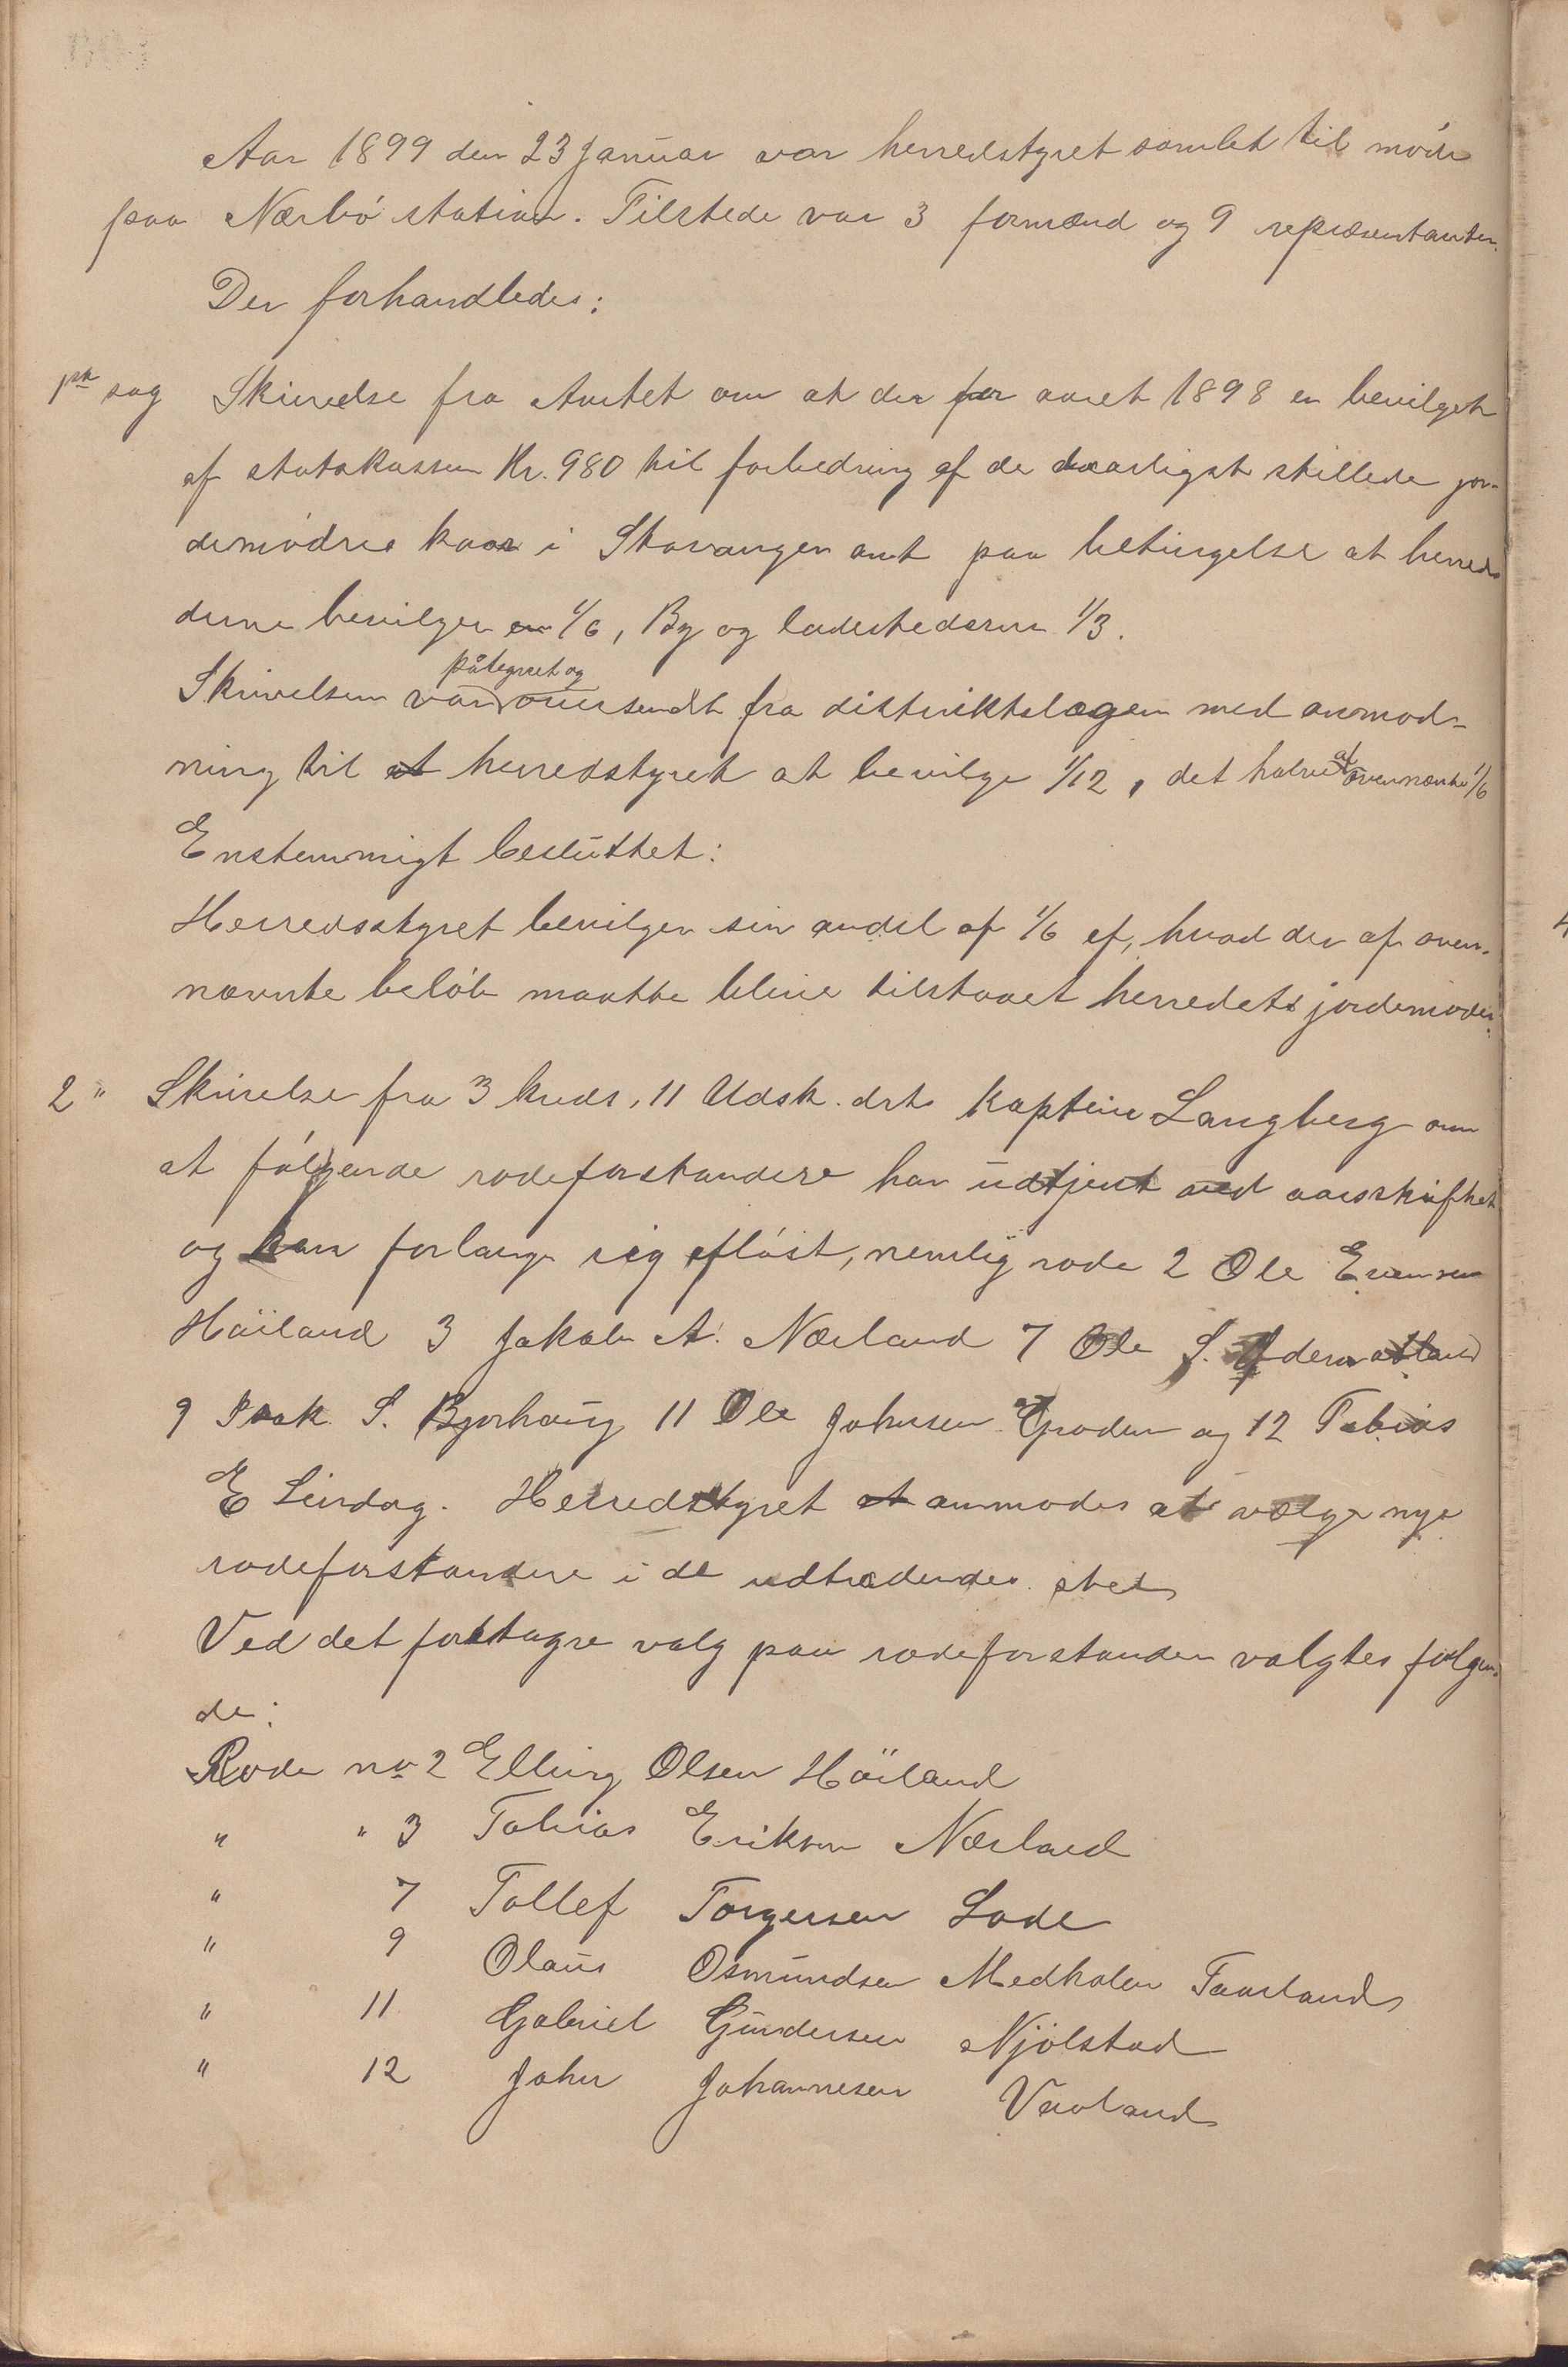 Aar 1899 den 23 Januar var herredstyret samlet til møde
paa Nærbø station. Tilstede var 3 formænd og 9 repræsentanter.
Der forhandledes:
1ste sag Skrivelse fra Amtet om at der for aaret 1898 er bevilget
af statskassen Kr. 980 til forbedring af de daarligst stillede jor-
demødres kaar i Stavanger amt paa betingelse at herreds
derne bevilger en 1/6, By og ladestederne 1/3.
Skrivelsen var påtegnet og oversendt fra distriktslægen med anmod-
ning til at herredstyret at bevilge 1/12, det halve af ovennævnte 1/6
Enstemmigt besluttet:
Herredsstyret bevilger sin andel af 1/6 af, hvad der af oven-
nævnte beløb maatte blive tilstaaet herredets jordemoder.
2 " Skrivelse fra 3 kreds, 11 Udsk. dst. Kaptein Langberg om
at følgende rodeforstandere har udtjent ved aarsskiftet
og kan forlange sig afløst, nemlig rode 2 Ole Evensen
Høiland 3 Jakob A. Nærland 7 Ole S.
9 Isak S. Bjorhaug 11 Ole Johnsen Groden og 12 Tobias
E Lindog. Herredstyret at anmodes at vælge nye
rodeforstandere i de udtrædendes sted
Ved det foretagne valg paa rodeforstander valgtes følgen-
de:
Rode no 2 Elling Olsen Høiland
" " 3 Tobias Eriksen Nærland
" 7 Tollef Torgersen Lode
" 9 Olaus Osmundsen Medholen Taarland
" 11 Gabriel Gundersen Njølstad
" 12 John Johannesen Vavland